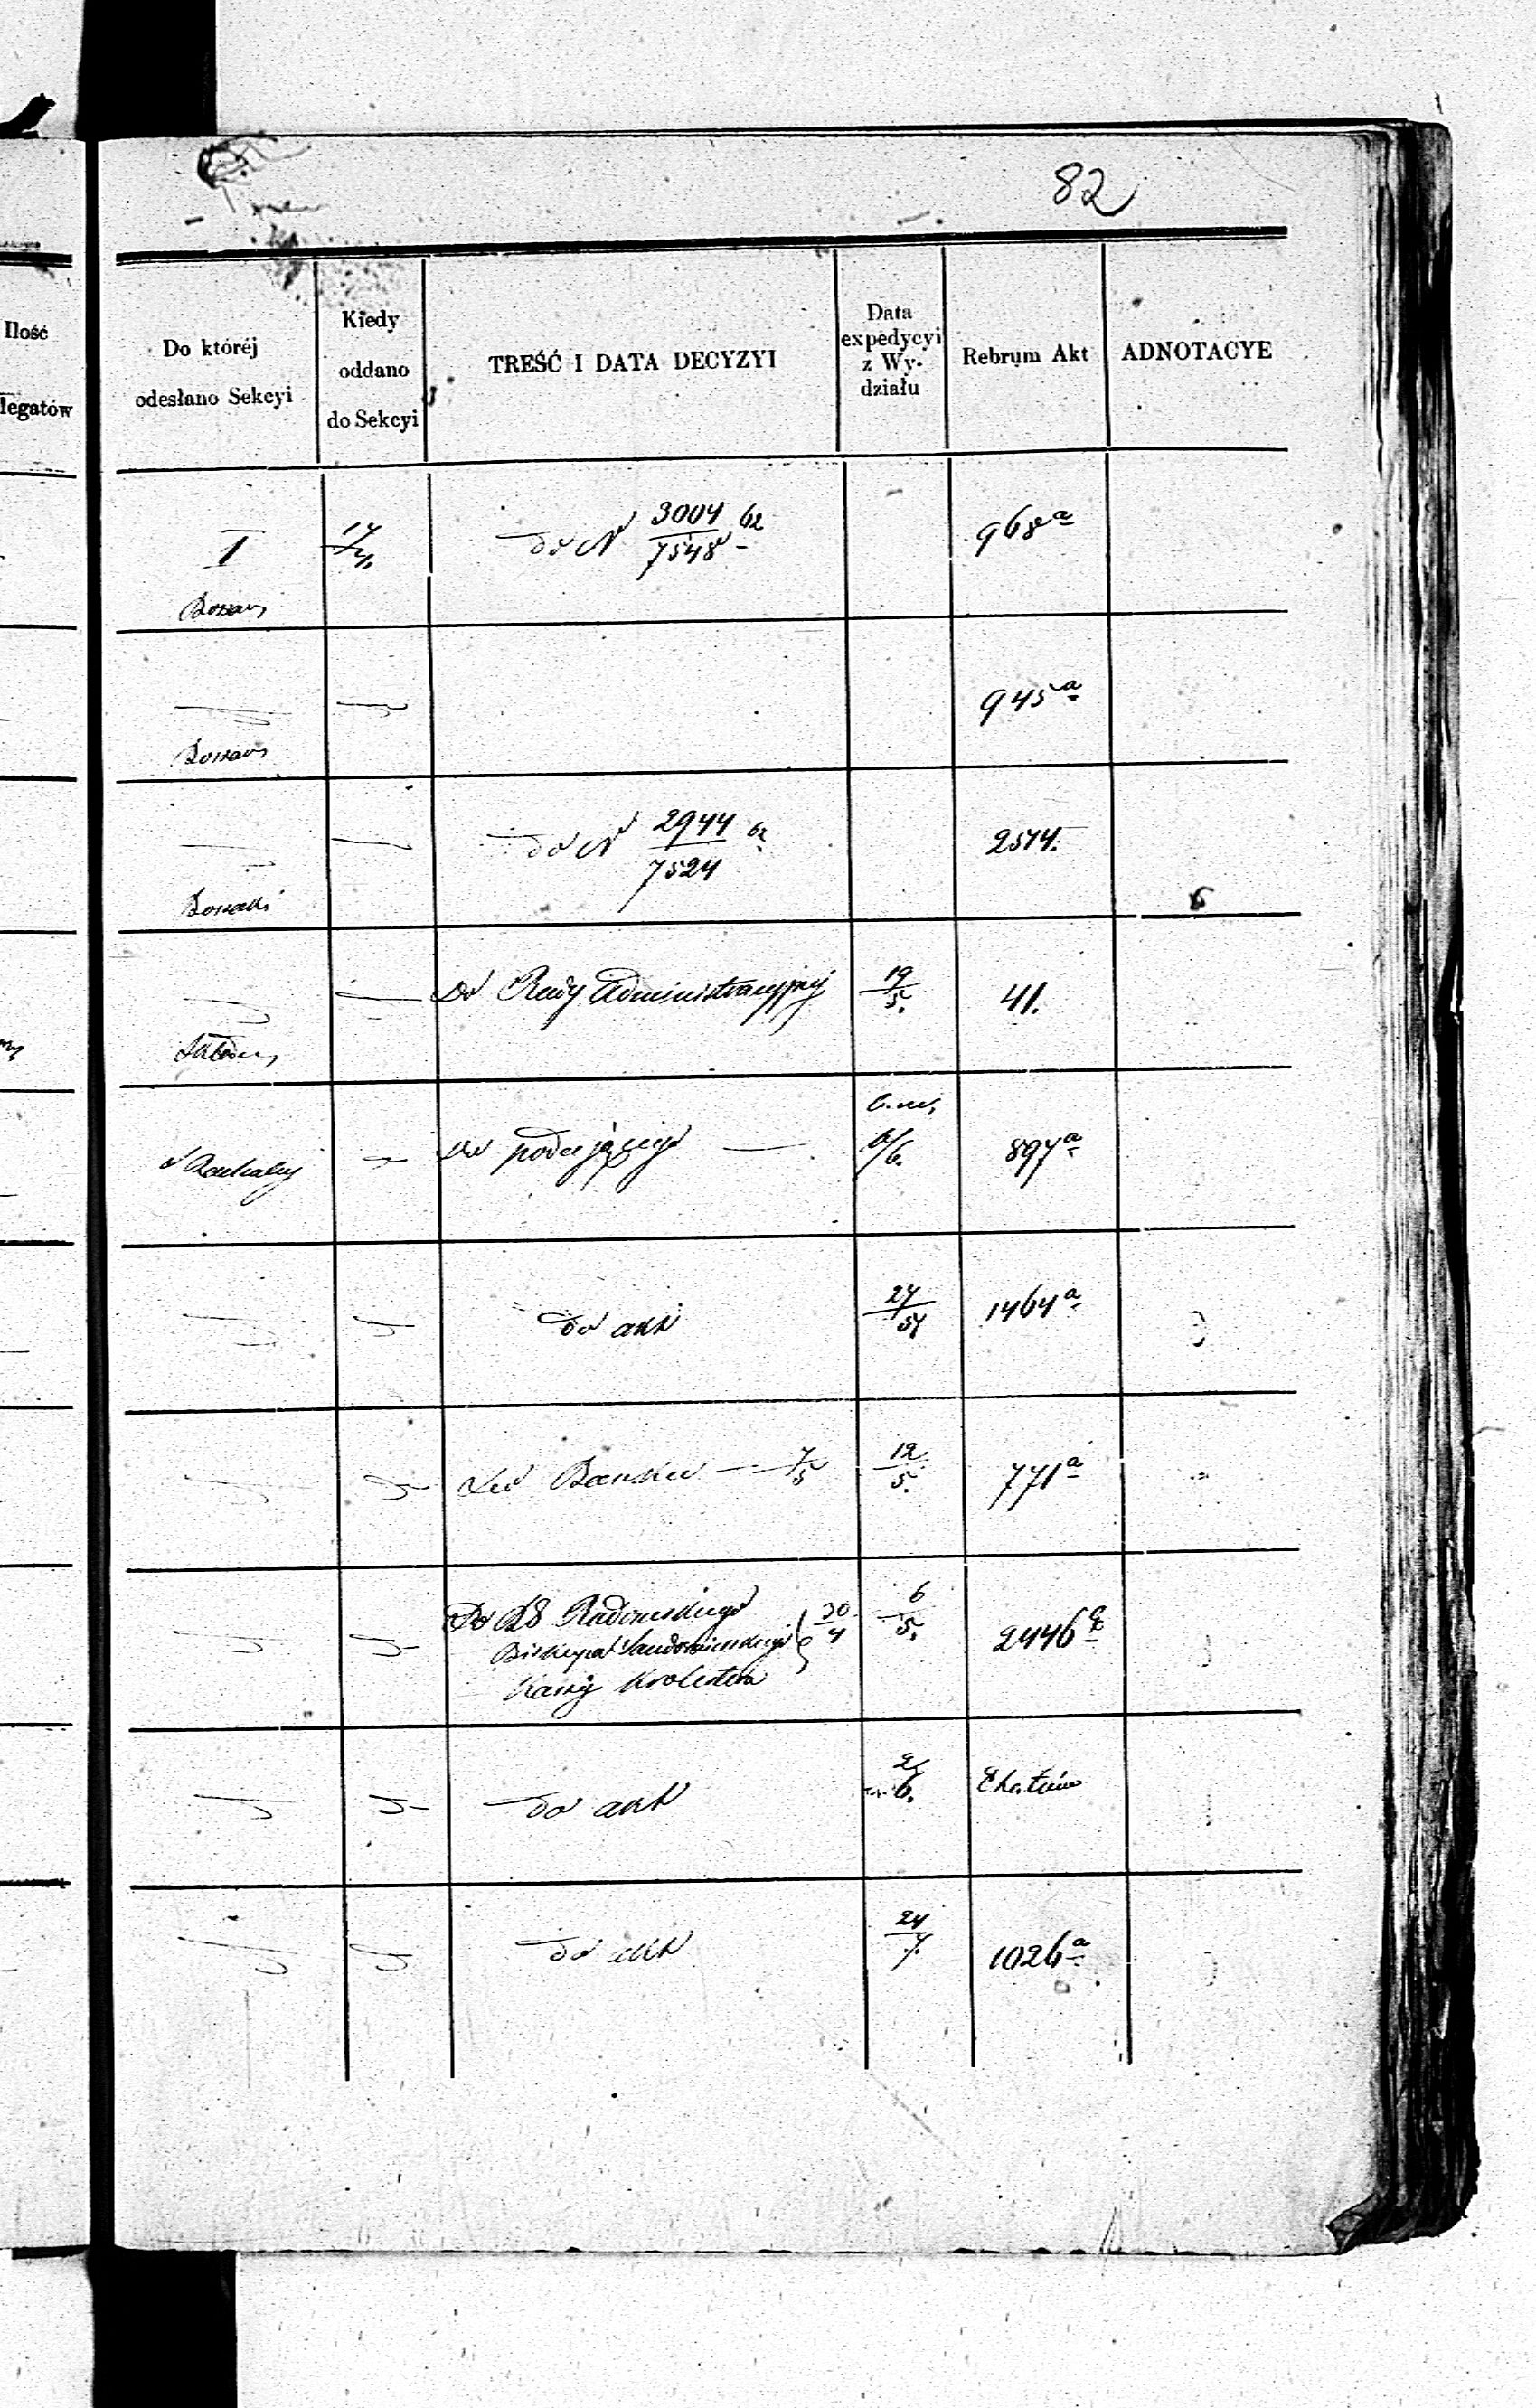 82
Ilość
legatów
Do któréj
odesłano Sekcyi
Kiedy
oddano
do Sekcyi
TREŚĆ I DATA DECYZYI
Data
expedycyi
z Wy-
działu
Rebrum Akt
ADNOTACYE
I
do N 3004/7548 62
968 a
945 a
do N 2944/7524 62
2514.
Do Rady Administracyjnej
19/5.
41.
Do podającego
6/6.
897 a
do akt
1464 a
Do Banku 7/5
12/5.
771 a
Do RG Radomskiego
Biskupa Sandomierskiego 30/4
Kassy Królestwa
6/5.
2446
do akt
do akt
24/7.
1026 a